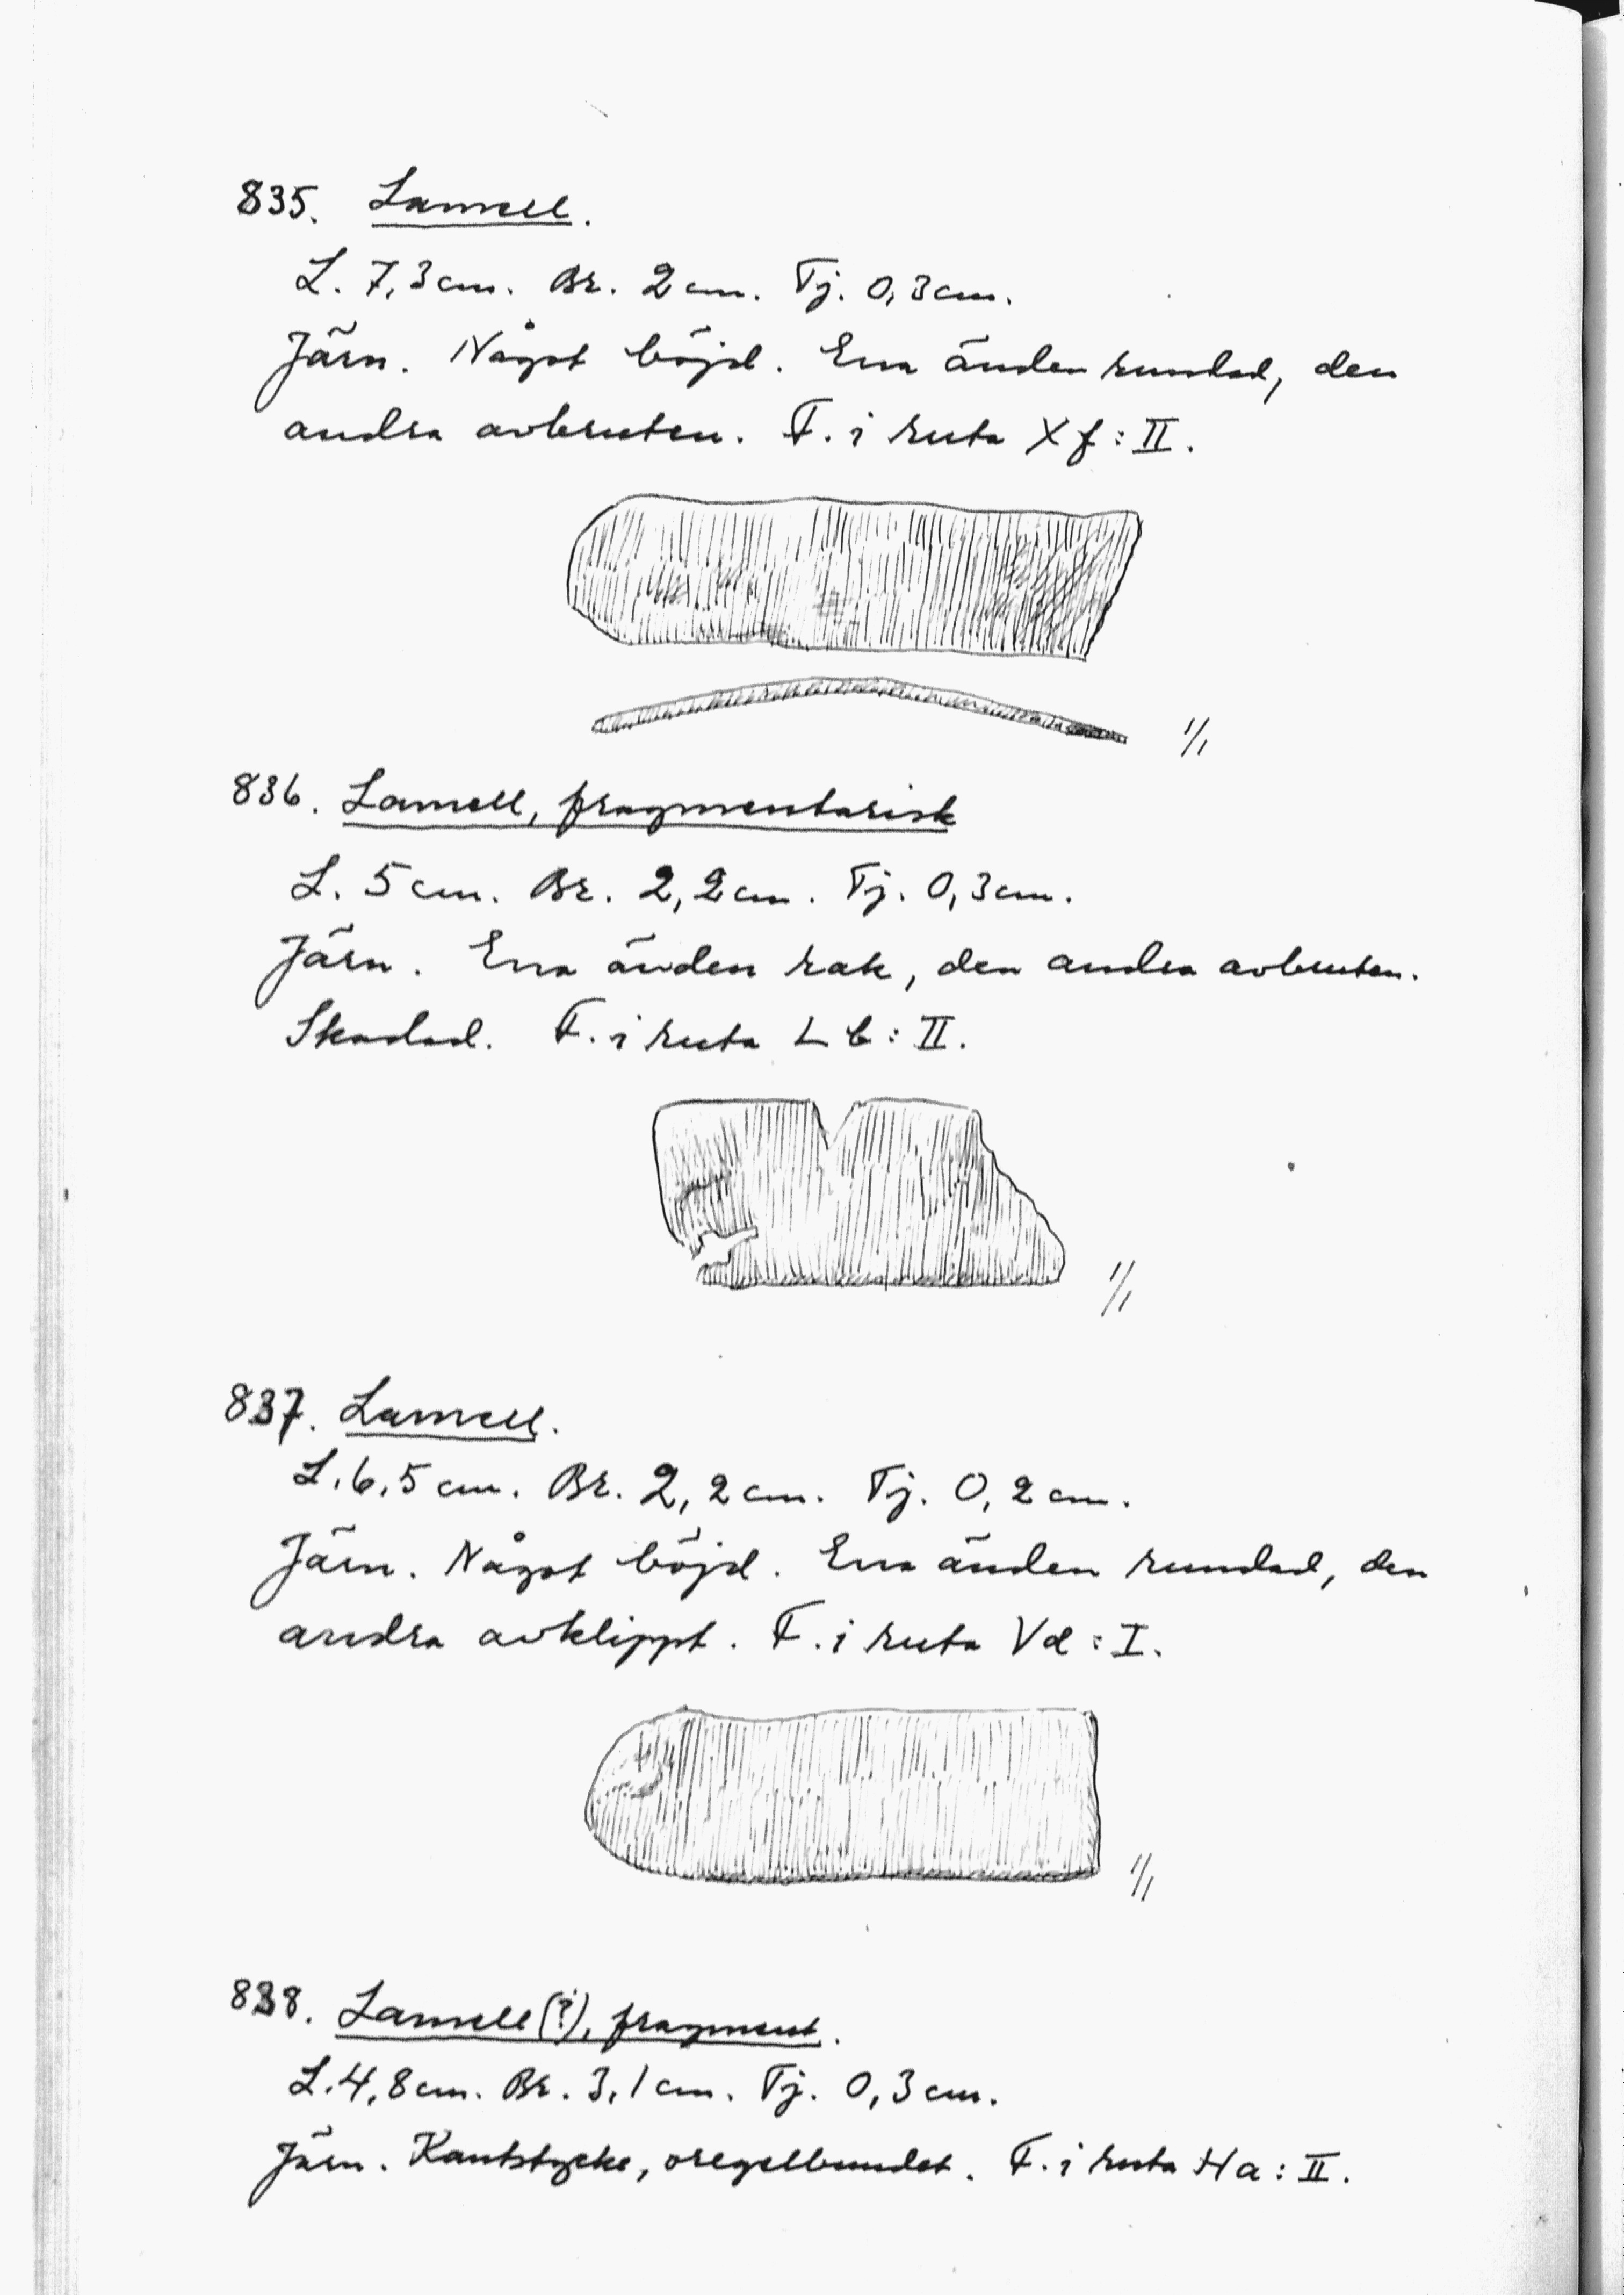 835. Lamell.
L. 7,3 cm. Br. 2 cm. Tj. 0,3 cm.
Järn. Något böjd. Ena änden rundad, den
andra avbruten. F. i ruta Xf: II.
1/1
836. Lamell, fragmentarisk
L. 5 cm. Br. 2,2 cm. Tj. 0,3 cm.
Järn. Ena änden rak, den andra avbruten.
Skadad. F. i ruta Lb: II.
1/1
837. Lamell.
L. 6,5 cm. Br. 2,2 cm. Tj. 0,2 cm.
Järn. Något böjd. Ena änden rundad, den
andra avklippt. F. i ruta Vd: I.
1/1
838. Lamell (?), fragment.
L. 4,8 cm. Br. 3,1 cm. Tj. 0,3 cm.
Järn. Kantstycke, oregelbundet. F. i ruta Ha: II.